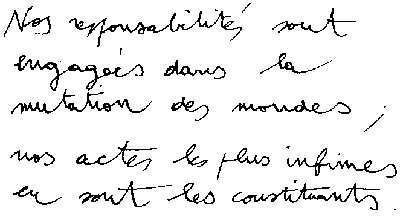 Nos responsabilités sont
engagées dans la
mutation des mondes ;
nos actes les plus infimes
en sont les constituants.